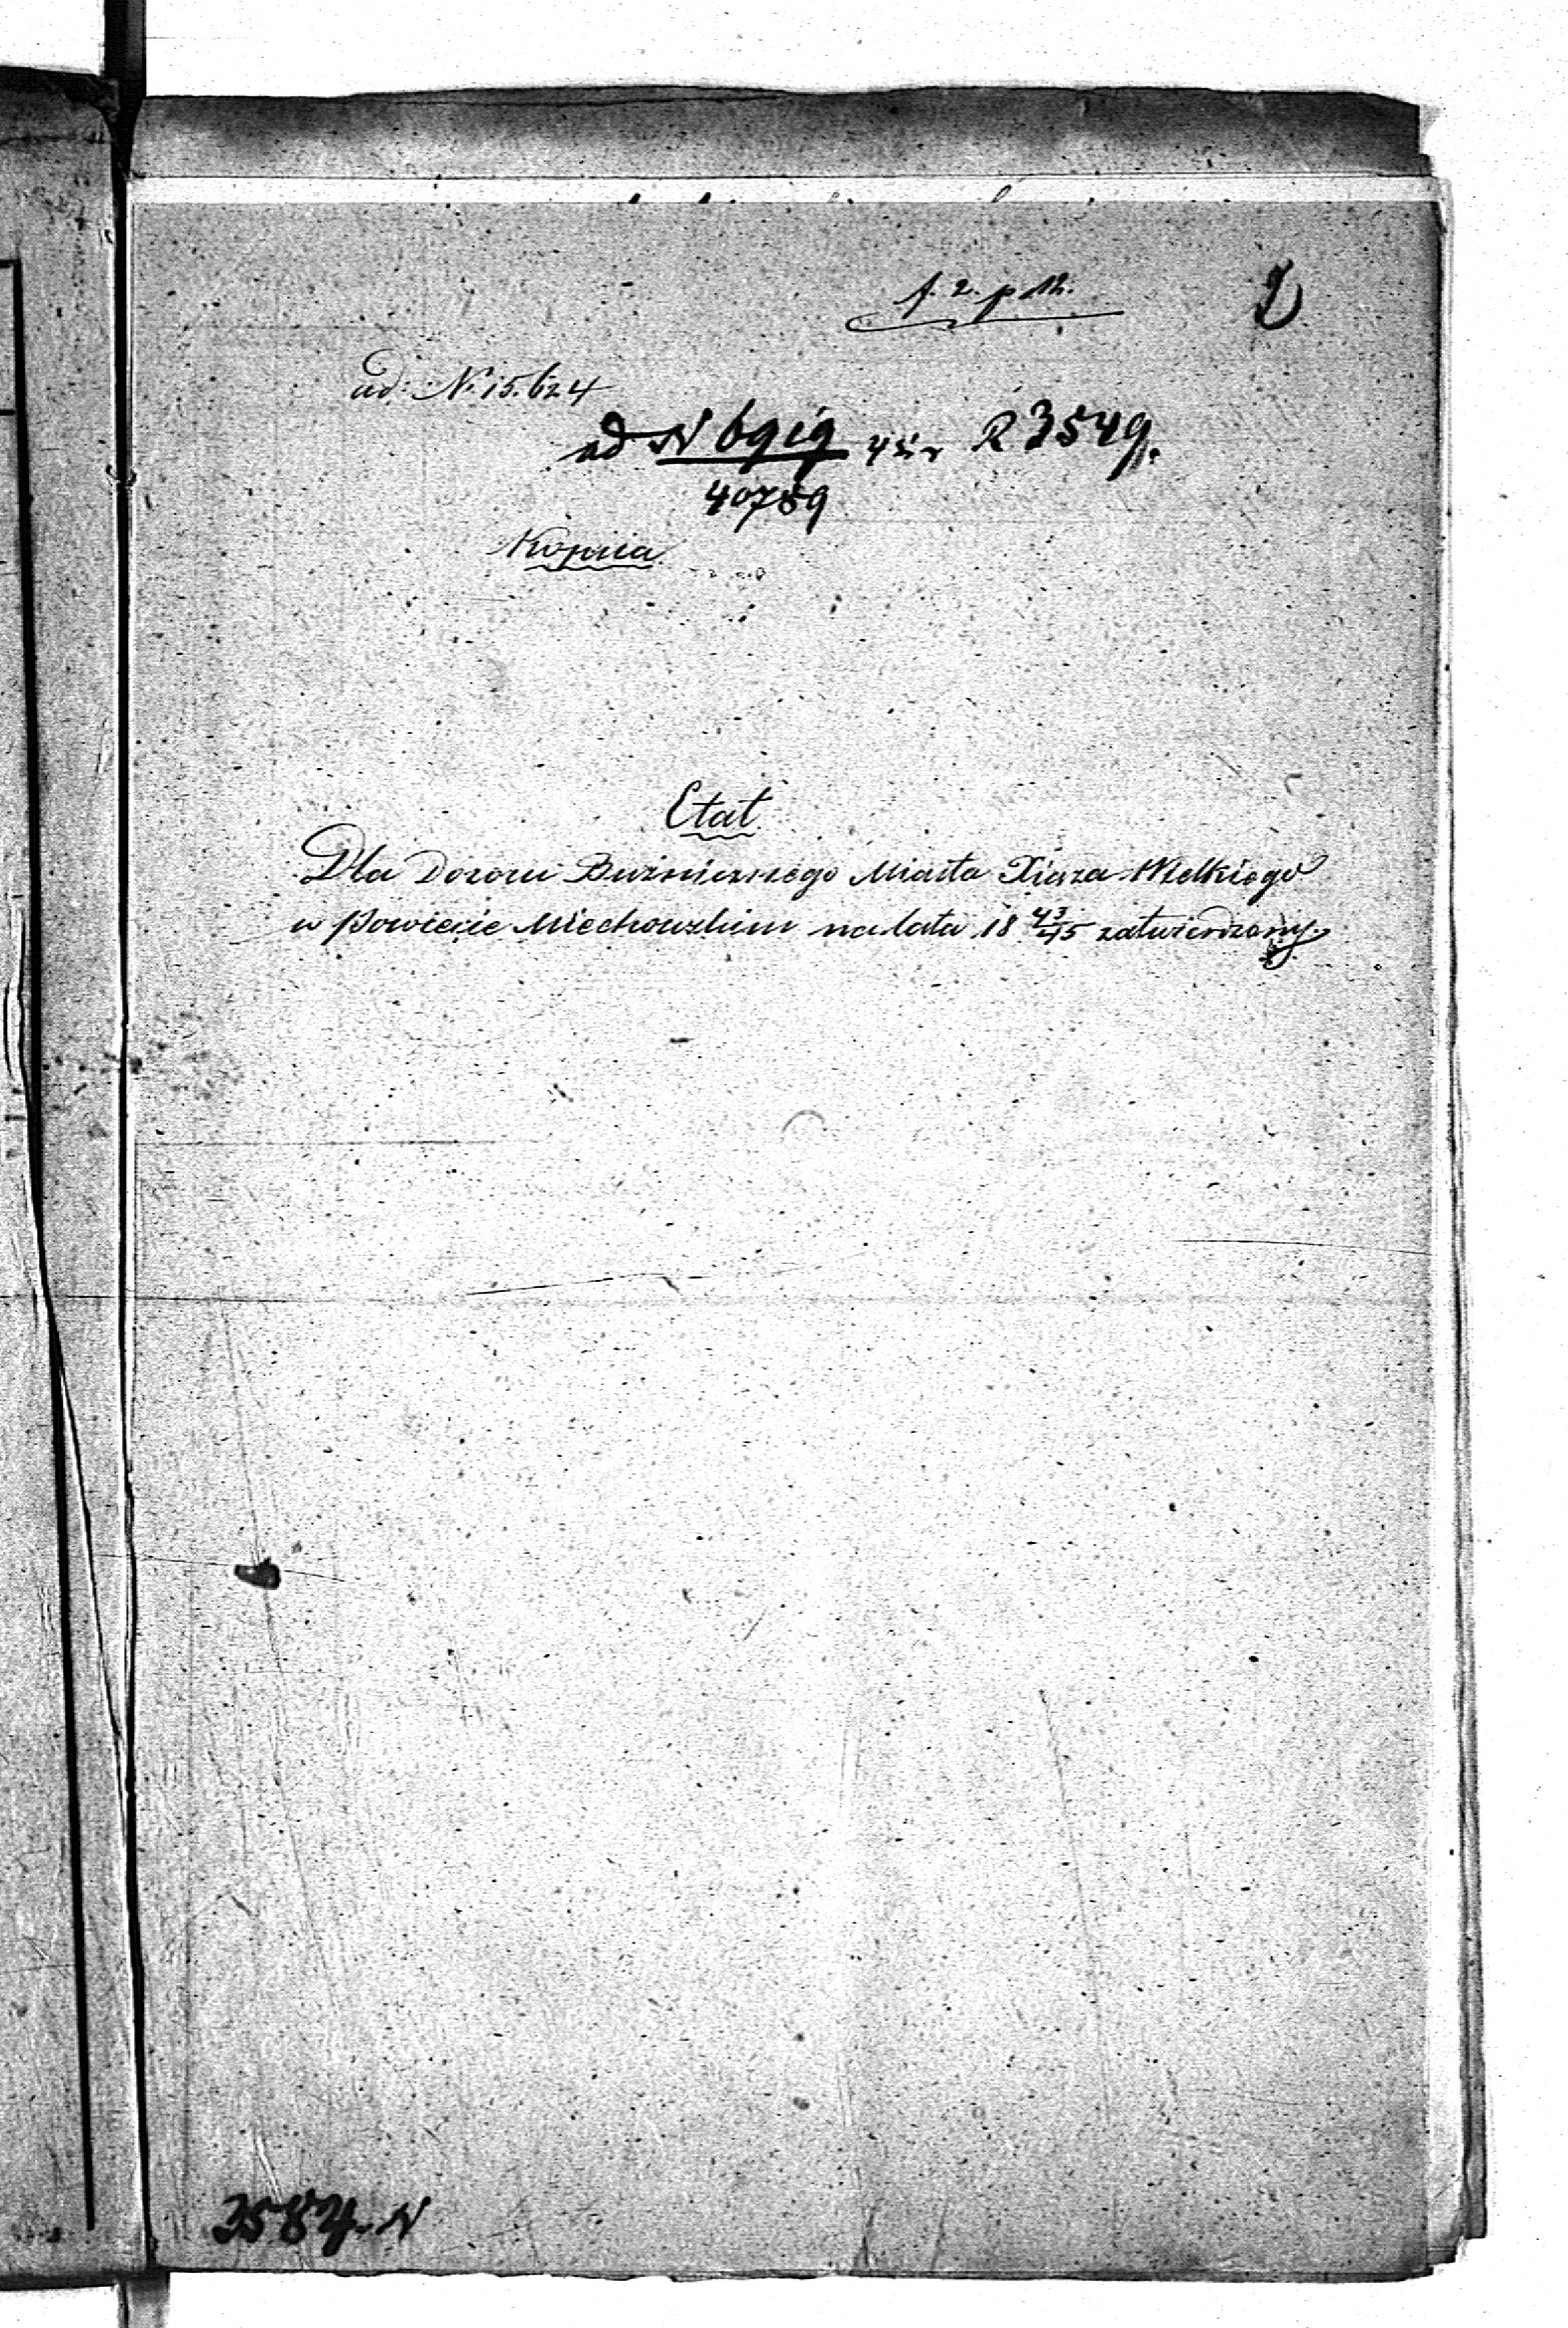 f. 2. p 12.
2
ad: N. 15.624
ad N 6919 R 3549.
40789
Kopiia
Etat
Dla Dozoru Bużnicznego Miasta Xiąza Wielkiego
w Powiecie Miechowskim na lata 18 43/45 zatwierdzony
3584. N